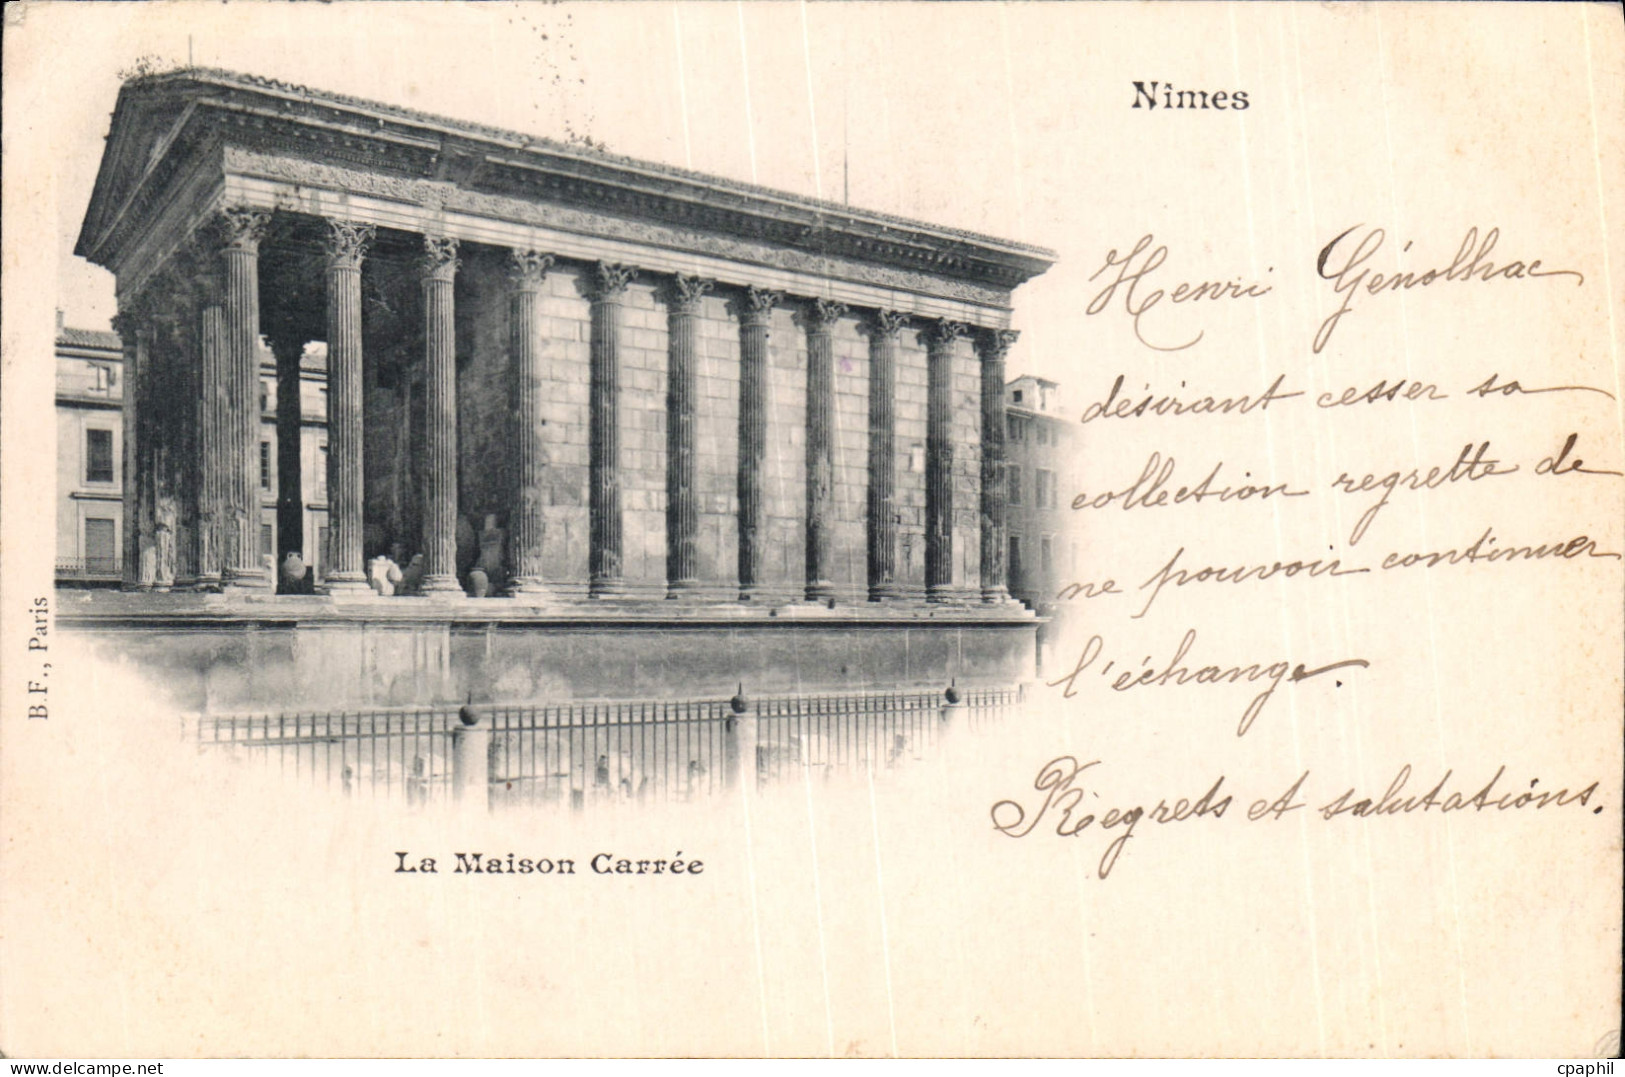 Nîmes
Henri Génolhac
désirant cesser sa
collection regrette de
ne pouvoir continuer
l'échange.
Regrets et salutations.
B.F., Paris
La Maison Carrée
cpaphil